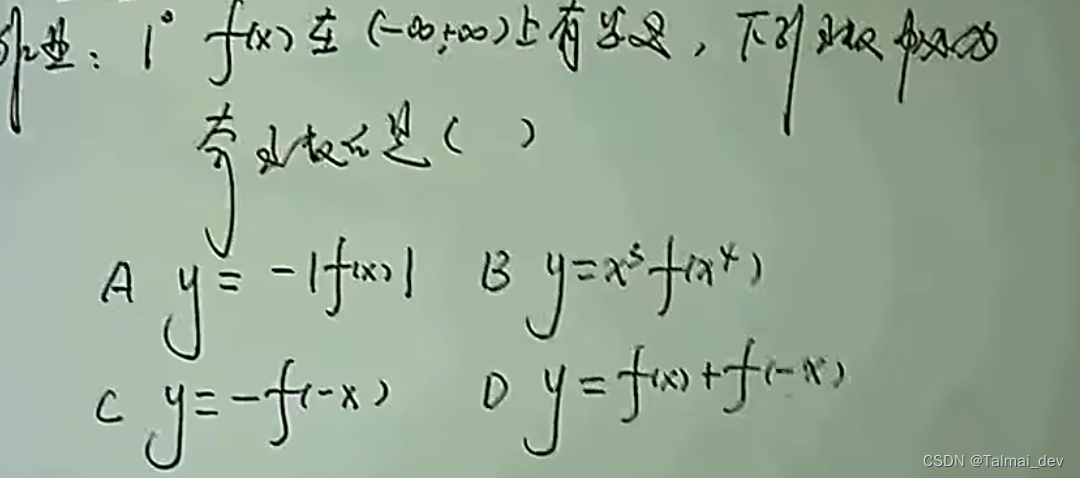 例2型：1° f(x) 在 (-∞,+∞)上有定义，下列函数中必为
奇函数的是（ ）
A y = -|f(x)| B y=x³f(x⁴)
C y=-f(-x) D y = f(x)+f(-x)
CSDN @Talmai_dev